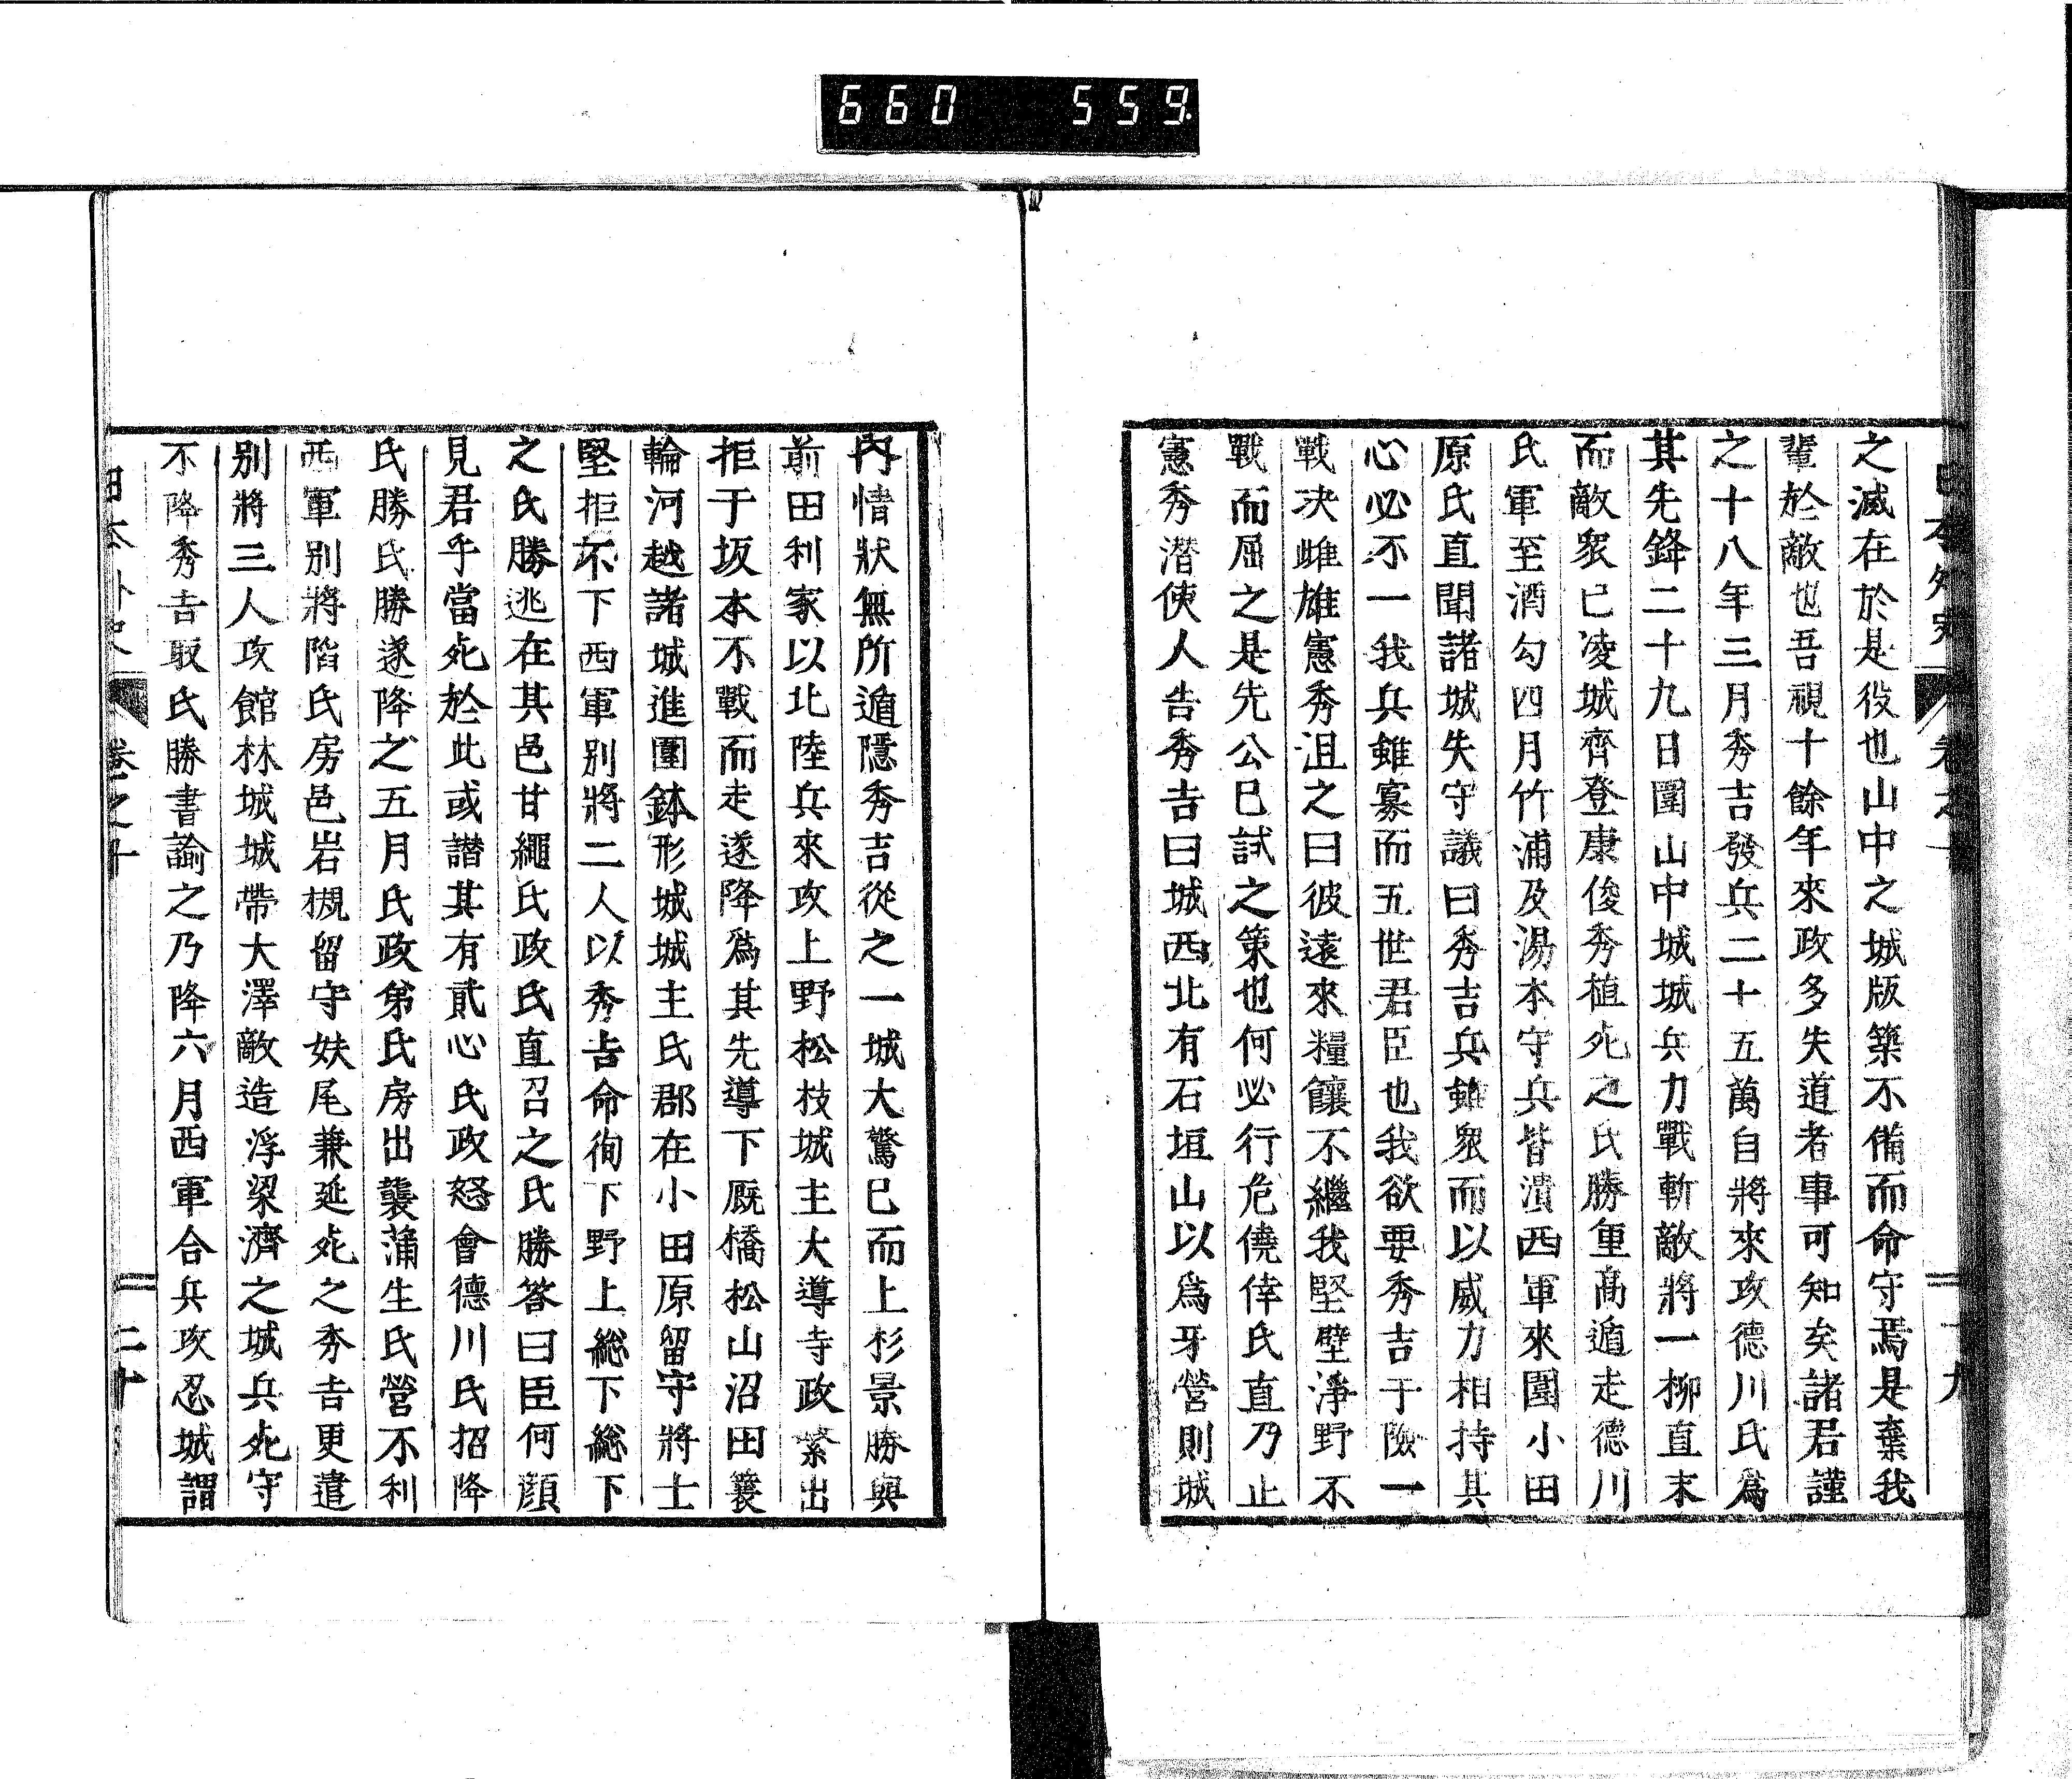 660 559.
之滅在於是役也山中之城版築不備而命守焉是棄我
輩於敵也吾視十餘年來政多失道者事可知矣諸君謹
之十八年三月秀吉發兵二十五萬自將來攻德川氏爲
其先鋒二十九日圍山中城城兵力戰斬敵將一柳直末
而敵衆已凌城齊登康俊秀植死之氏勝重高遁走德川
氏軍至酒勾四月竹浦及湯本守兵皆潰西軍來圍小田
原氏直聞諸城失守議曰秀吉兵雖衆而以威力相持其
心必不一我兵雖寡而五世君臣也我欲要秀吉于險一
戰决雌雄憲秀沮之曰彼遠來糧饟不繼我堅壁淨野不
戰而屈之是先公已試之策也何必行危僥倖氏直乃止
憲秀潛使人告秀吉曰城西北有石垣山以爲牙營則城
內情狀無所遁隱秀吉從之一城大驚已而上杉景勝與
前田利家以北陸兵來攻上野松枝城主大導寺政繁出
拒于坂本不戰而走遂降爲其先導下厩橋松山沼田簑
輪河越諸城進圍鉢形城城主氏郡在小田原留守將士
堅拒不下西軍別將二人以秀吉命徇下野上総下総下
之氏勝逃在其邑甘繩氏政氏直召之氏勝答曰臣何顏
見君乎當死於此或譖其有貳心氏政怒會德川氏招降
氏勝氏勝遂降之五月氏政弟氏房出襲蒲生氏營不利
西軍別將陷氏房邑岩槻留守妹尾兼延死之秀吉更遣
別將三人攻館林城城帶大澤敵造浮梁濟之城兵死守
不降秀吉取氏勝書諭之乃降六月西軍合兵攻忍城謂
日本外史 卷之十 二十